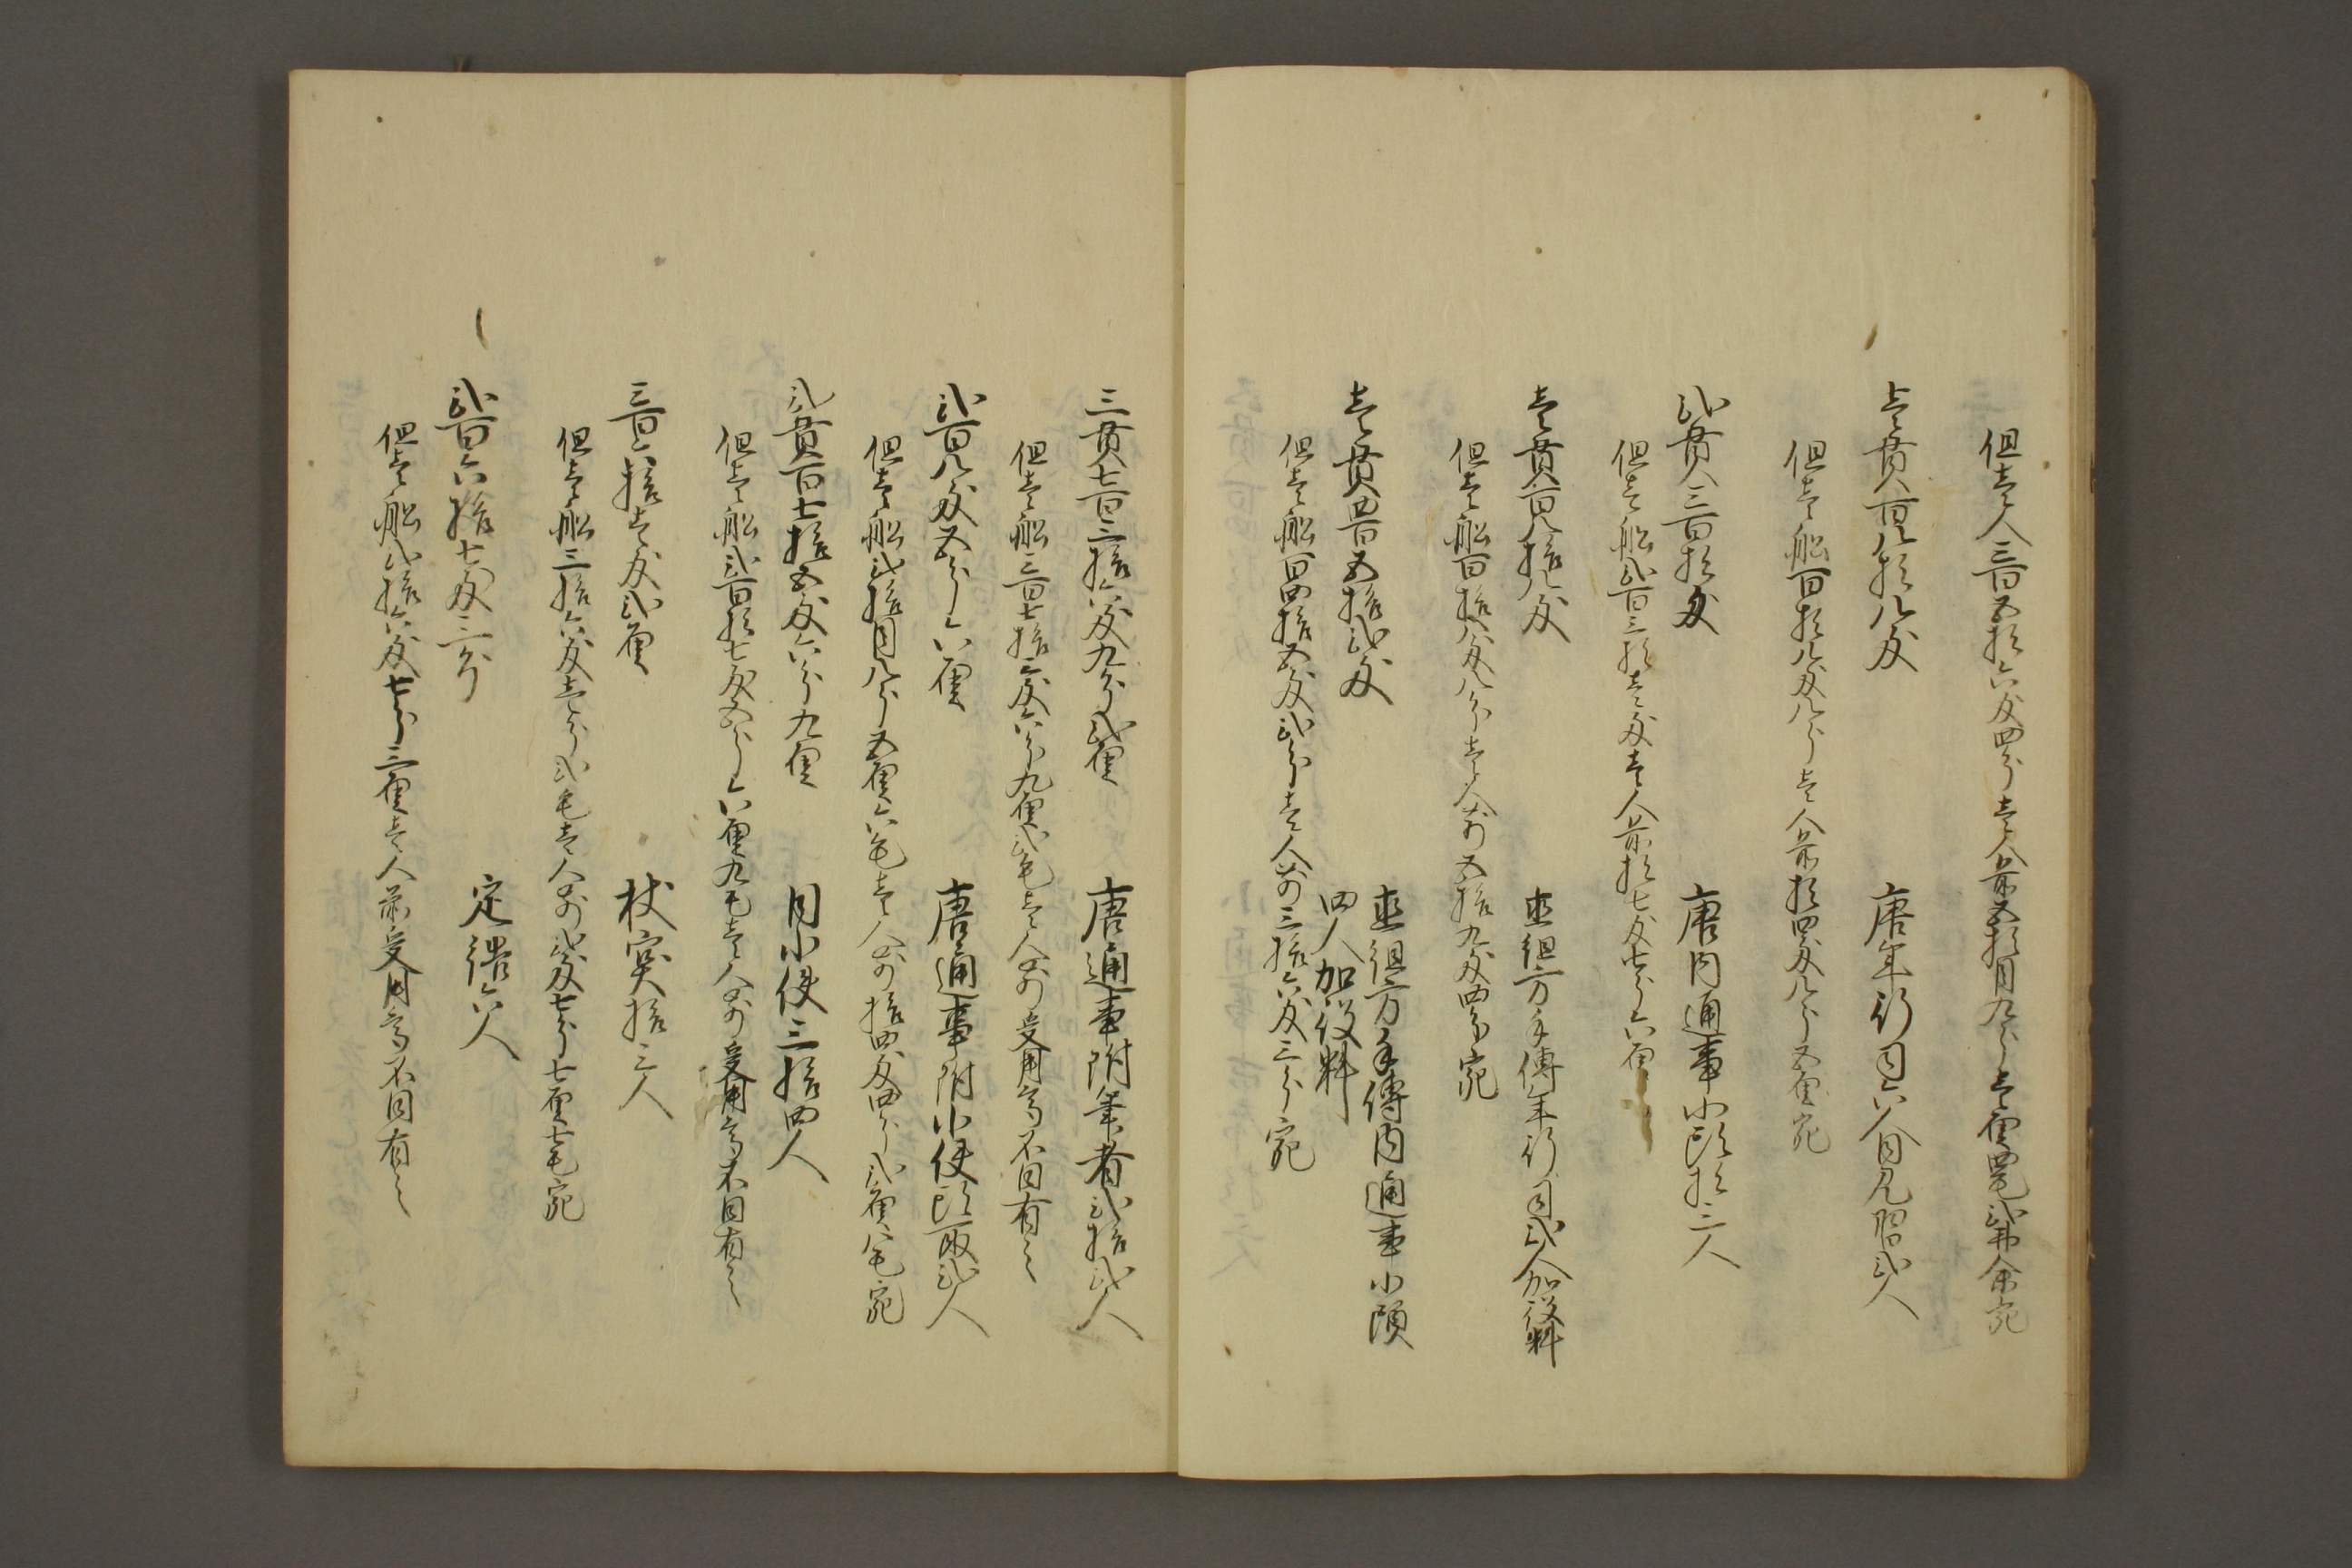 但壱人三百五拾六匁四分壱人前五拾目九分壱厘四毛弐弗余宛
壱貫百八拾八匁 唐年行司六人同見習弐人
但壱船百拾八匁八分壱人前拾四匁八分五厘宛
弐貫三百拾匁 唐内通事小頭拾三人
但壱船弐百三拾壱匁壱人前拾七匁七分六厘
壱貫百八拾八匁 直組方手傳年行司弐人加役料
但壱船百拾八匁八分壱人前五拾九匁四分宛
壱貫四百五拾弐匁 直組方手傳内通事小頭
四人加役料
但壱船百四拾五匁弐分壱人前三拾六匁三分宛
三貫七百三拾六匁九分弐厘 唐通事附筆者弐拾弐人
但壱船三百七拾三匁六分九厘弐毛壱人前受用高不同有之
弐百八匁五分六厘 唐通事附小使頭取弐人
但壱船弐拾目八分五厘六毛壱人前拾四匁四分弐厘八毛宛
弐貫百七拾五匁六分九厘 同小使三拾四人
但壱船弐百拾七匁五分六厘九毛壱人前受用高不同有之
三百六拾壱匁弐厘 杖突拾三人
但壱船三拾六匁壱分弐毛壱人前弐匁七分七厘七毛宛
弐百六拾七匁三分 定遣六人
但壱船弐拾六匁七分三厘壱人前受用高不同有之